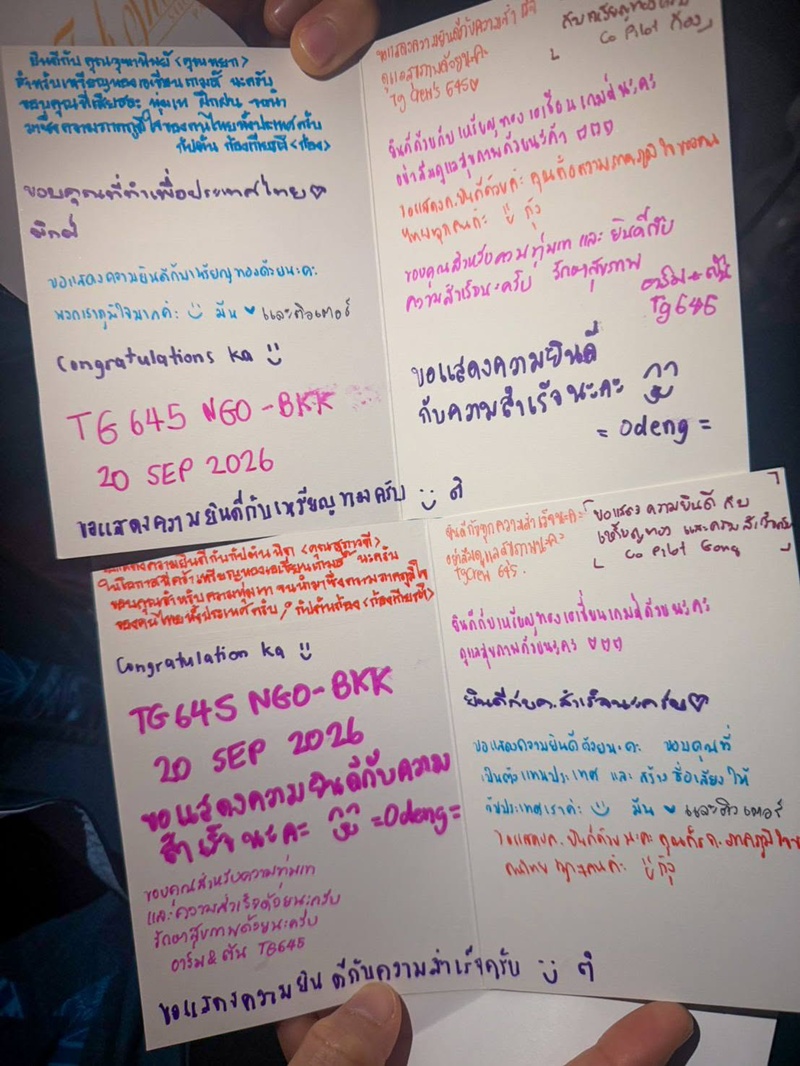 ยินดีกับ คุณจุฑาทิพย์ <คุณหยก>
สำหรับเหรียญทองเอเชียนเกมส์ นะครับ
ขอบคุณที่เสียสละ ทุ่มเท ฝึกฝน จนนำ
มาซึ่งความภาคภูมิใจของคนไทยทั้งประเทศครับ
กัปตัน ก้องเกียรติ <ก้อง>
ขอบคุณที่ทำเพื่อประเทศไทย ♡
ขอแสดงความยินดีกับเหรียญทองด้วยนะคะ
พวกเราภูมิใจมากค่ะ มีน ♥ และติวเตอร์
Congratulations ka
TG 645 NGO-BKK
20 SEP 2026
ขอแสดงความยินดีกับเหรียญทองครับ ตี๋
ขอแสดงความยินดีกับความสำเร็จ
ดูแลสุขภาพด้วยนะคะ
Tg Crew 645 ♡
กับเหรียญทองครับ
Co Pilot ก้อง
ยินดีด้วยกับเหรียญทองเอเชียนเกมส์นะคะ
อย่าลืมดูแลสุขภาพด้วยนะค้า ♡♡♡
ขอแสดงค.ยินดีด้วยค่ะ คุณคือความภาคภูมิใจของคน
ไทยทุกคนค่ะ กุ้ง
ขอบคุณสำหรับความทุ่มเท และ ยินดีกับ
ความสำเร็จนะครับ รักษาสุขภาพ
อาร์ม + ตัน
TG 645
ขอแสดงความยินดี
กับความสำเร็จนะคะ
= Odeng =
ขอแสดงความยินดีกับกัปตัน <คุณสุภาวดี>
ในโอกาสที่คว้าเหรียญทองเอเชียนเกมส์ นะครับ
ขอบคุณสำหรับความทุ่มเท จนนำมาซึ่งความภาคภูมิใจ
ของคนไทยทั้งประเทศครับ, กัปตันก้อง <ก้องเกียรติ>
Congratulation ka
TG 645 NGO-BKK
20 SEP 2026
ขอแสดงความยินดีกับความ
สำเร็จนะคะ =Odeng=
ขอบคุณสำหรับความทุ่มเท
และความสำเร็จด้วยนะครับ
รักษาสุขภาพด้วยนะครับ
อาร์ม & ตัน TG645
ขอแสดงความยินดีกับความสำเร็จครับ ตี๋
ยินดีกับทุกความสำเร็จนะคะ
อย่าลืมดูแลสุขภาพนะคะ
Tg Crew 645.
ขอแสดงความยินดี กับ
เหรียญทอง และความสำเร็จครับ
Co Pilot Gong
ยินดีกับเหรียญทองเอเชี่ยนเกมส์ด้วยนะคะ
ดูแลสุขภาพด้วยนะคะ ♡♡♡
ยินดีกับค.สำเร็จนะครับ♡
ขอแสดงความยินดีด้วยนะคะ ขอบคุณที่
เป็นตัวแทนประเทศ และ สร้างชื่อเสียงให้
กับประเทศเราค่ะ มีน ♥ และติวเตอร์
ขอแสดงค.ยินดีด้วยนะคะ คุณคือค.ภาคภูมิใจของ
คนไทยทุกคนค่ะ กุ้ง